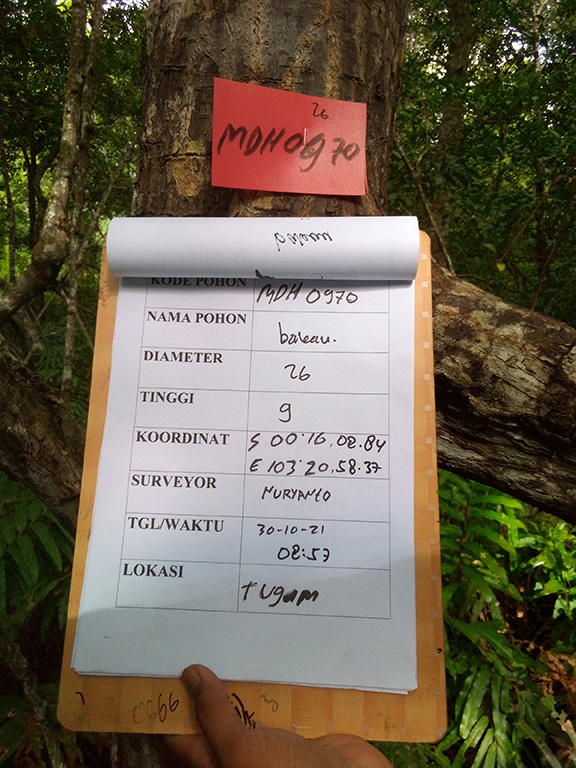 26
MDH0970
KODE POHON MDH 0970
NAMA POHON baleau.
DIAMETER 26
TINGGI 9
KOORDINAT S 00°16,02.84
E 103°20,58.37
SURVEYOR MURYANTO
TGL/WAKTU 30-10-21
08:57
LOKASI TUgam